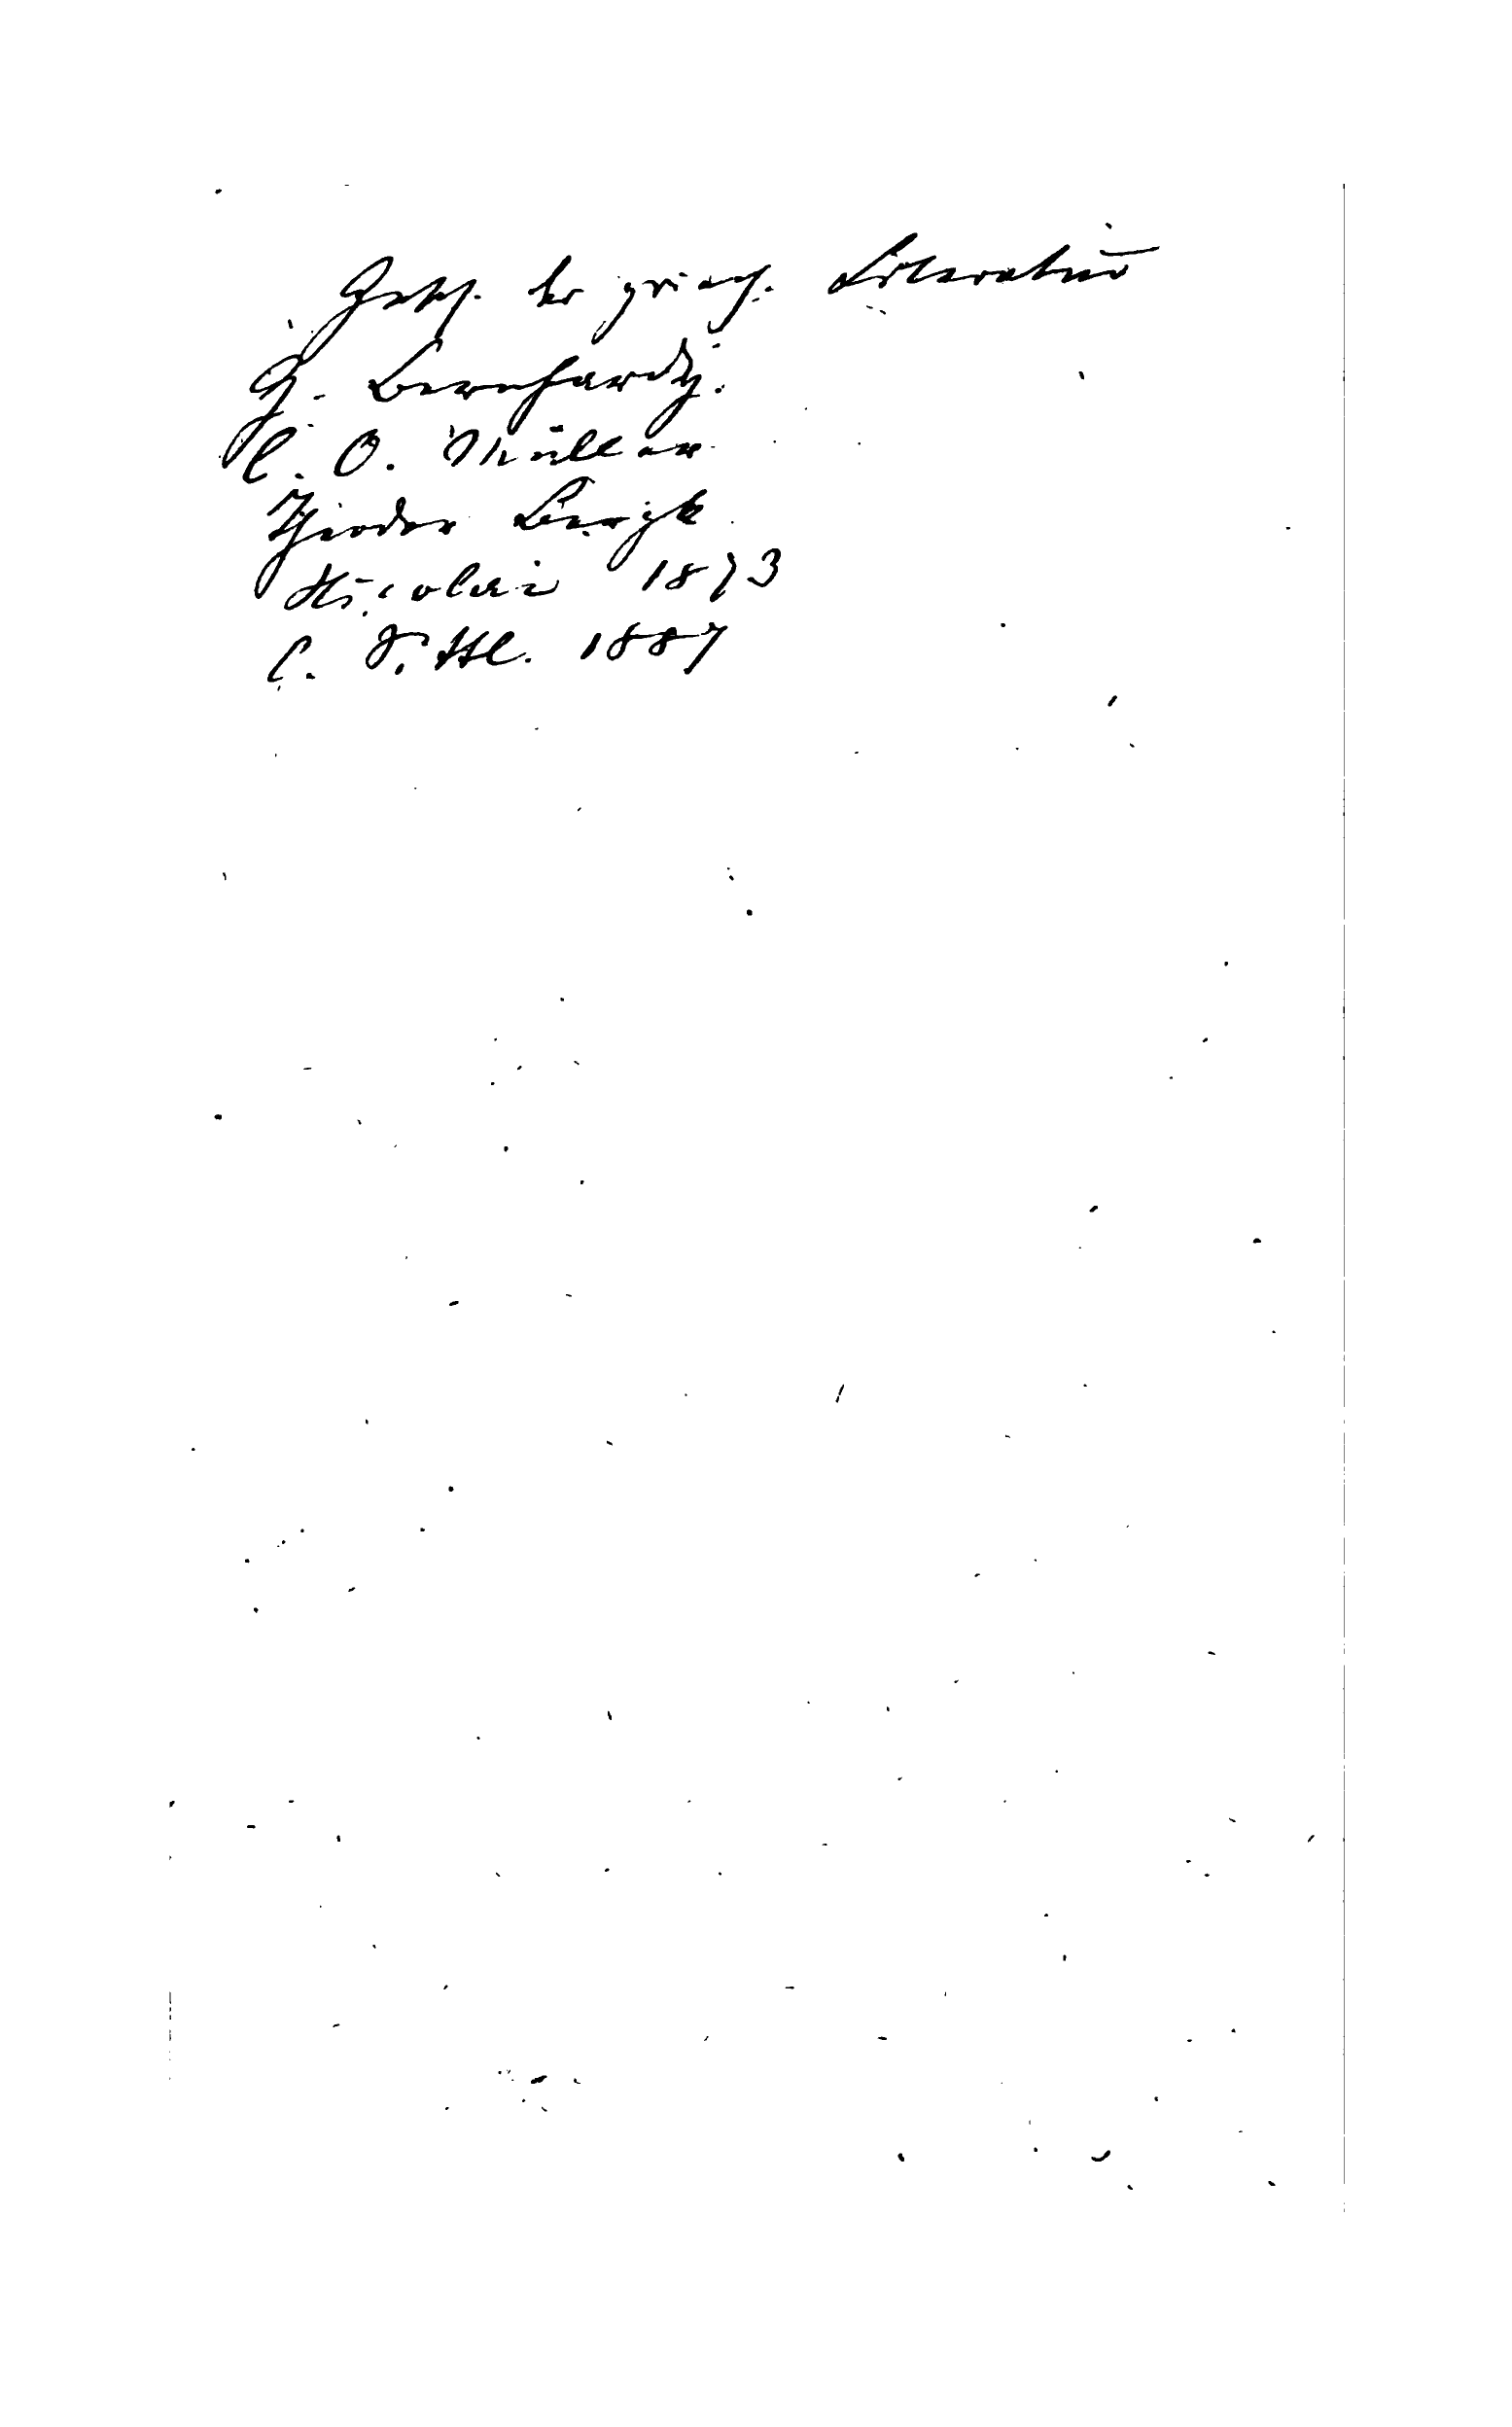 Gesch. der griech. Literatur
G. Bernhardy.
C. O. Müller
Theodor Bergk
Nicolai 1873
C. Sittl. 1887